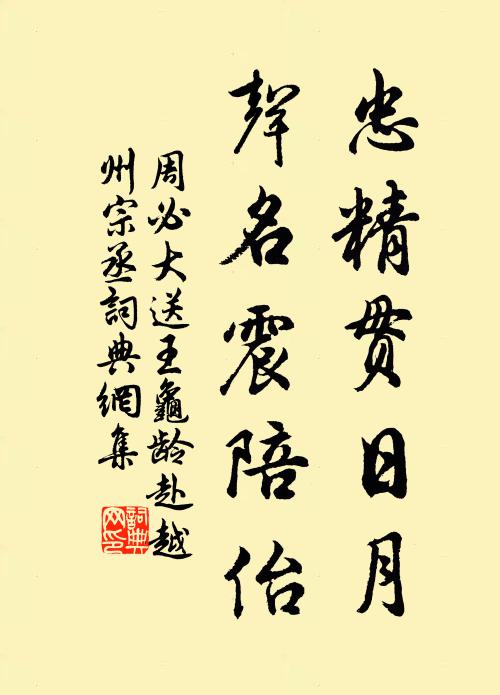 忠精贯日月
聲名震陪佁
周必大送王龜龄赴越
州宗丞詞典網集
詞典网印